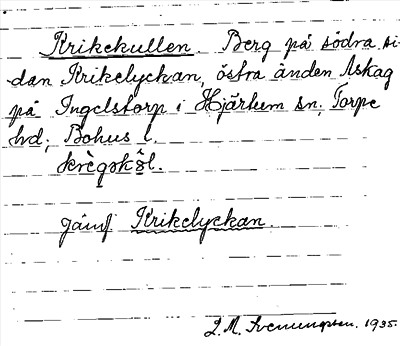 Krikekullen. Berg på södra si-
dan Krikelyckan, östra änden Askag
på Ingelstorp i Hjärtum sn, Torpe
hd, Bohus l.
Jämf Krikelyckan.
L. M. Svenungsson. 1935.